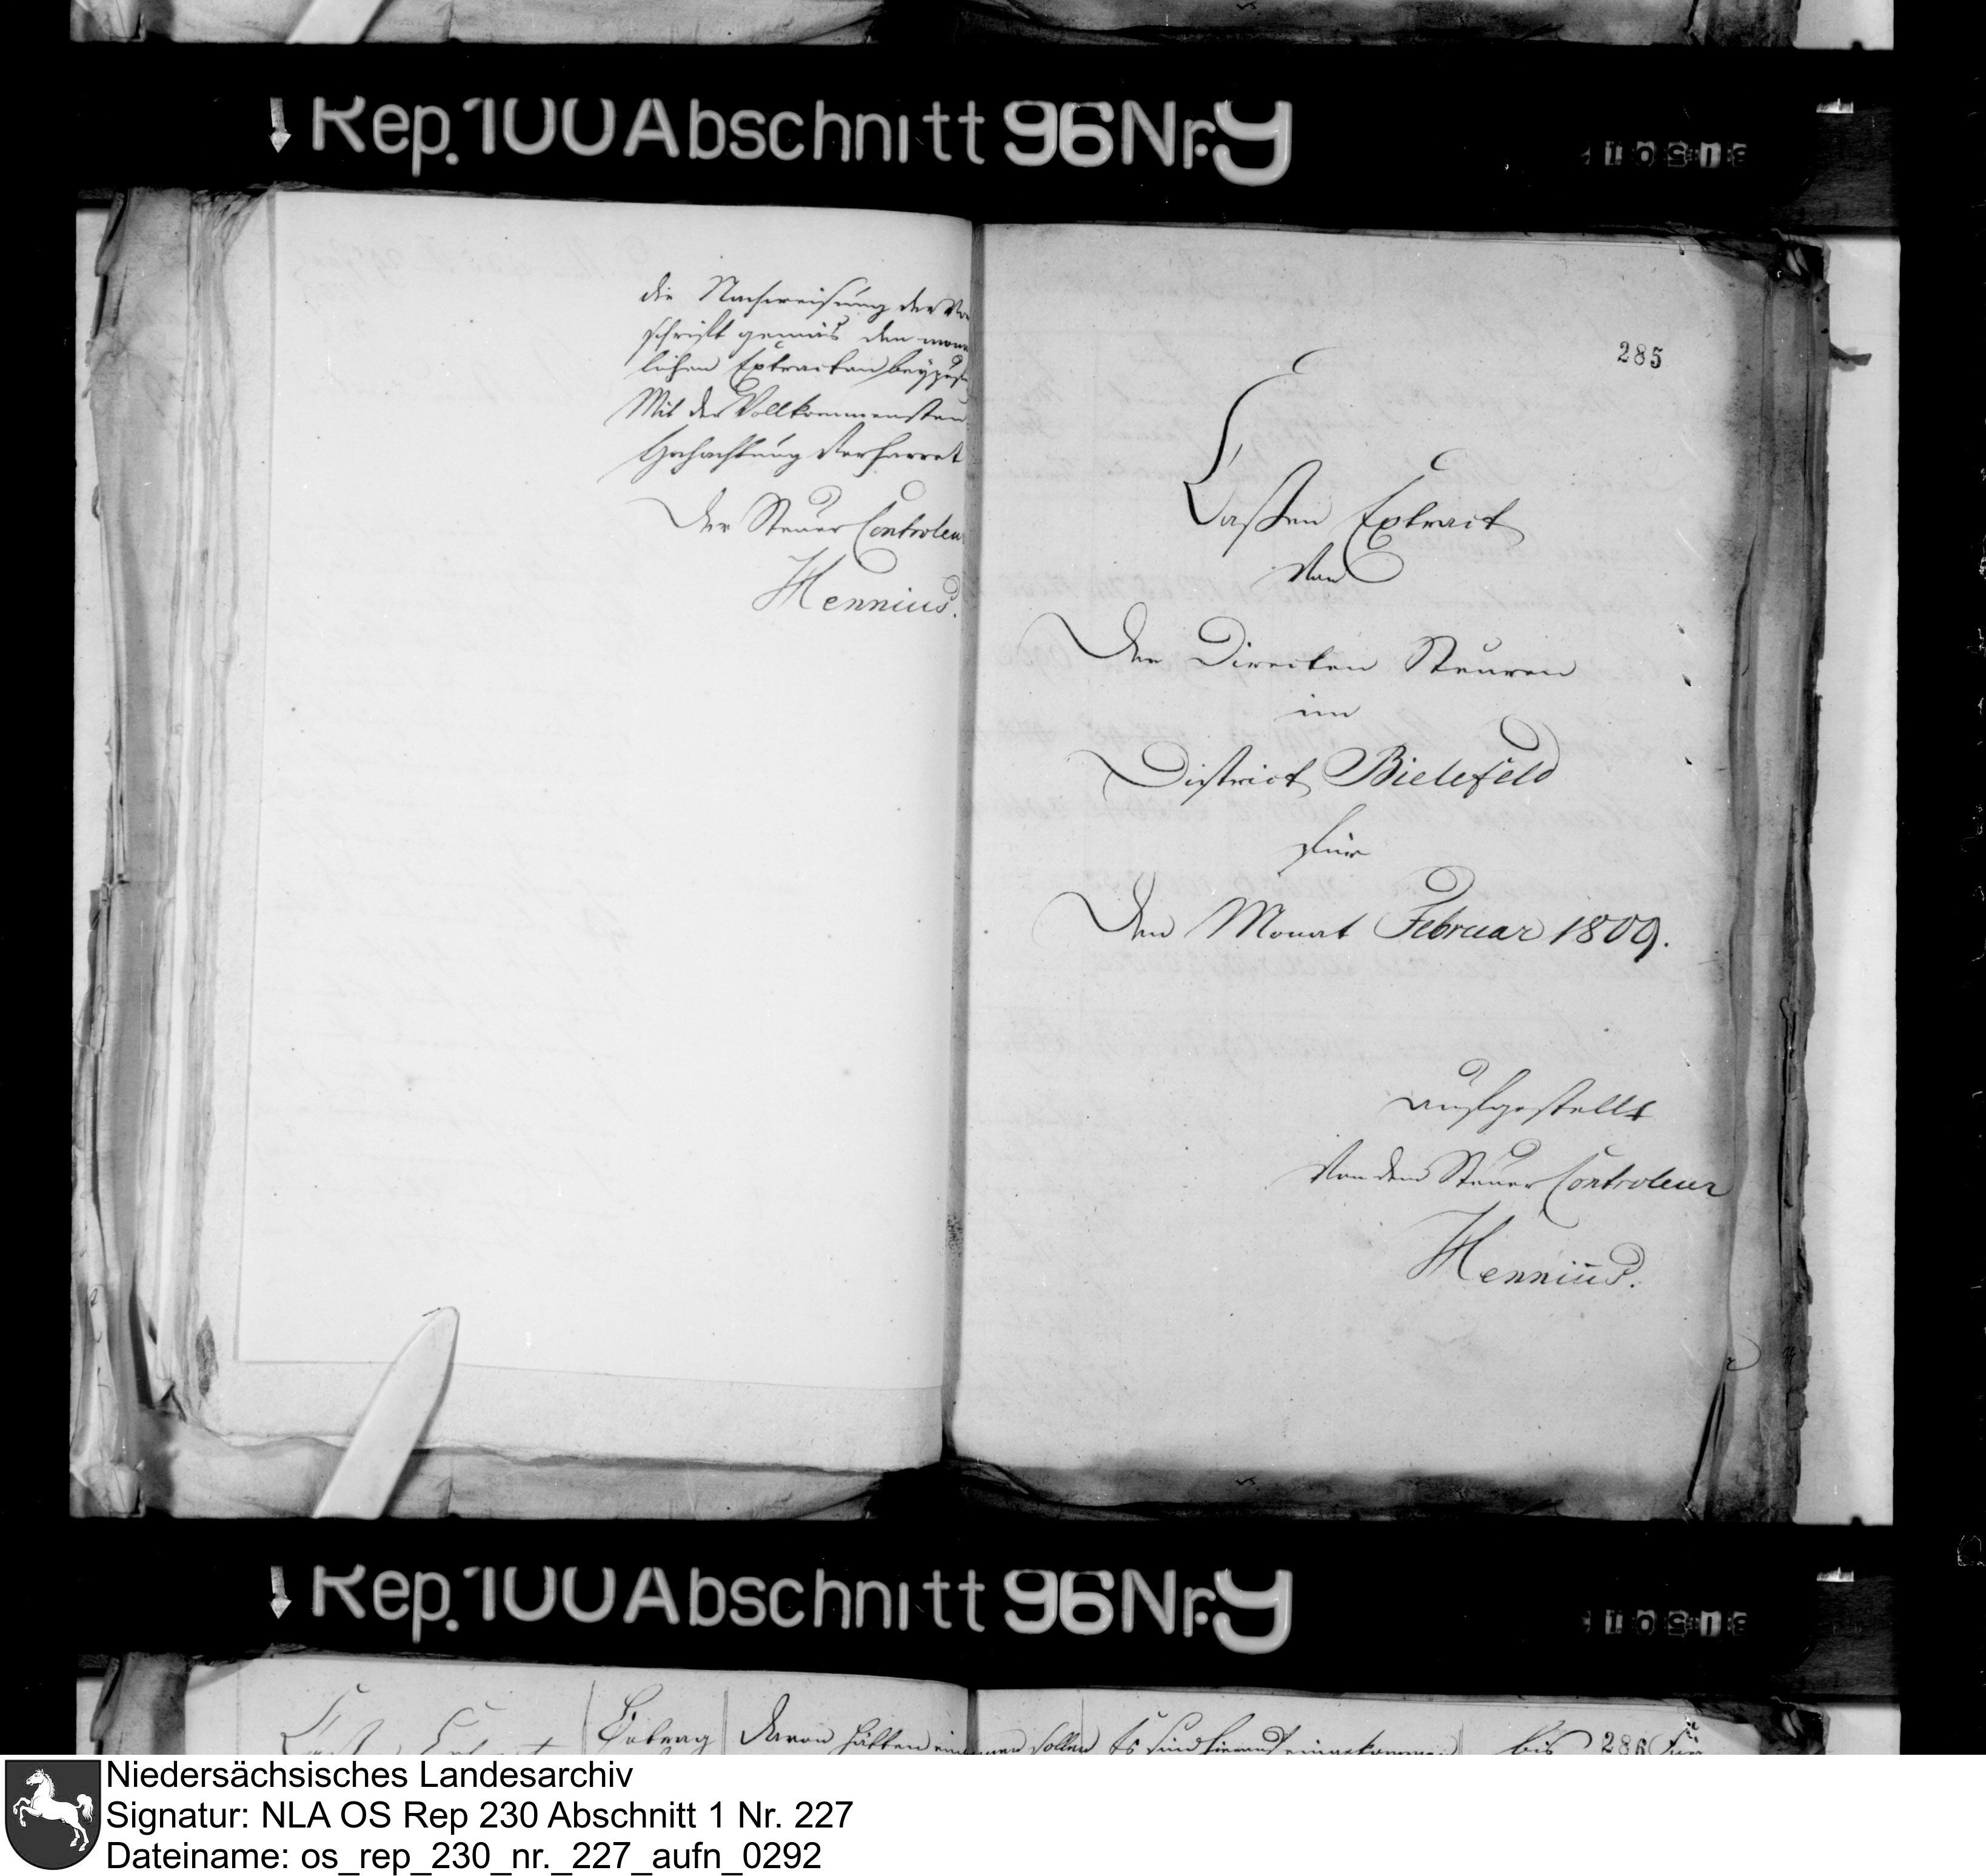 Rep. 100 Abschnitt 96 Nr. 9
die Nachweisung der Vor
schrift gemäs den monat
lichen Extracten beyzufü
Mit der Vollkommensten
Hochachtung Verharret
Der Steuer Controleu
Hennius.
285
Cassen Extract
Von
Den Direcken Steuren
im
District Bielefeld
für
Den Monat Februar 1809.
aufgestellt
Von dem Steuer Controleur
Hennius.
Rep. 100 Abschnitt 96 Nr. 9
Betrag
Davon hätten ein
men sollen
Es sind hierauf eingekommen
bis
286
Niedersächsisches Landesarchiv
Signatur: NLA OS Rep 230 Abschnitt 1 Nr. 227
Dateiname: os_rep_230_nr._227_aufn_0292